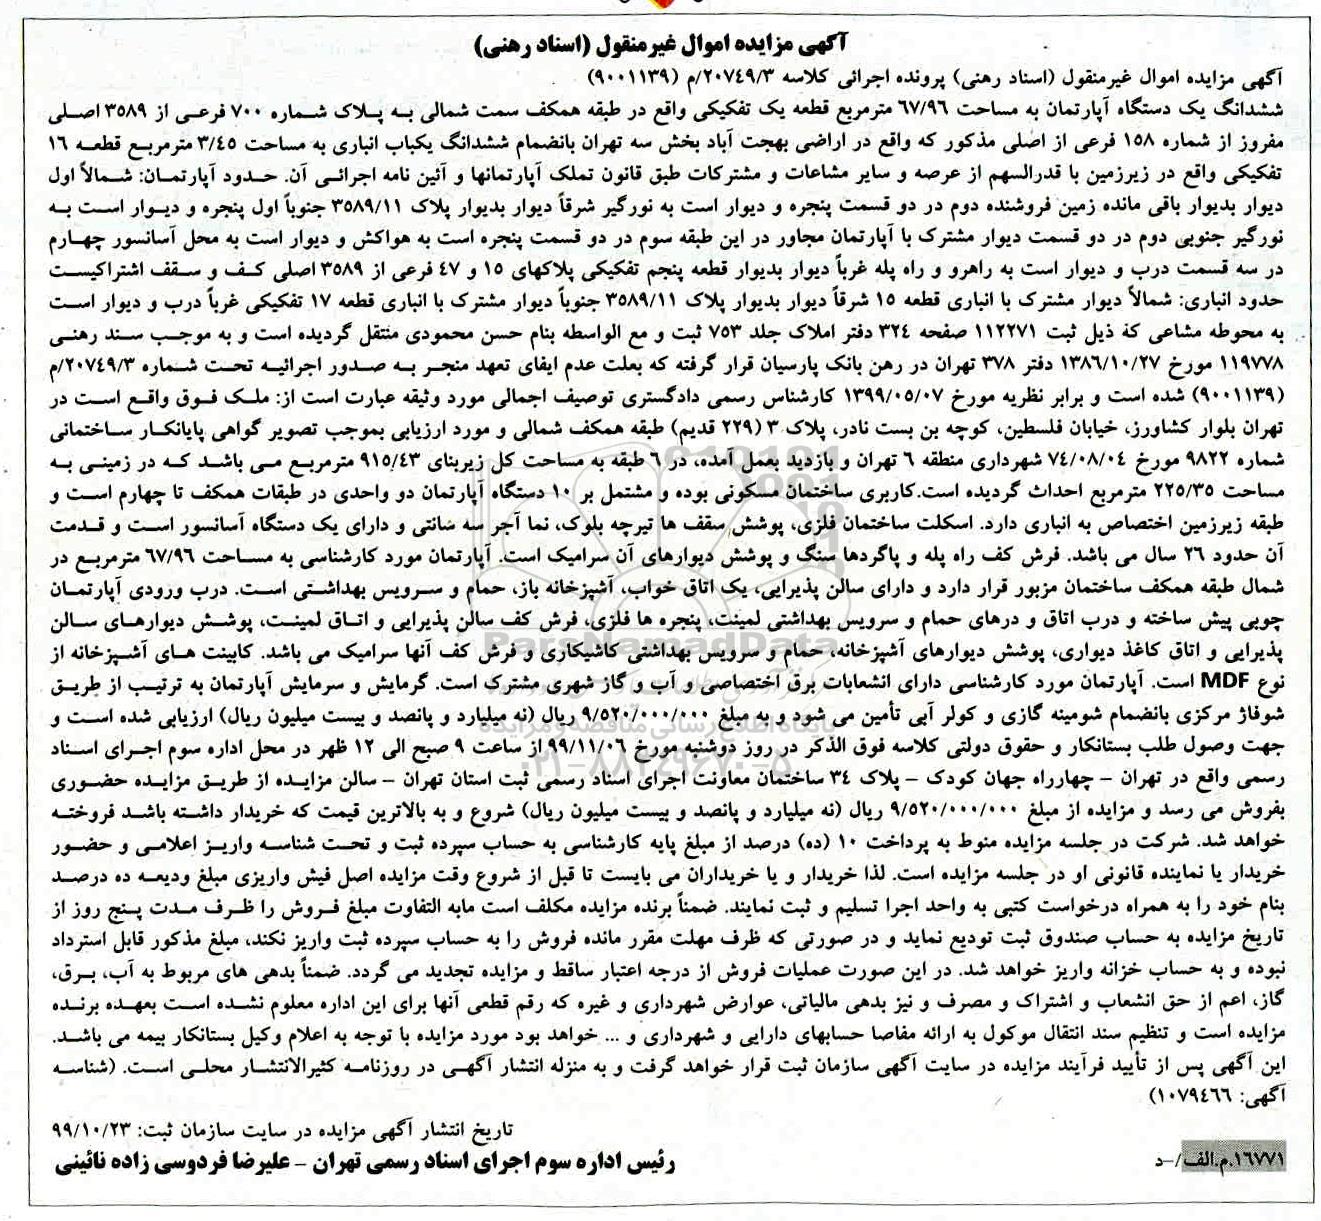 آگهی مزایده اموال غیرمنقول (اسناد رهنی)
آگهی مزایده اموال غیرمنقول (اسناد رهنی) پرونده اجرائی کلاسه ۲۰۷٤۹/۳/م (۹۰۰۱۱۳۹)
ششدانگ یک دستگاه آپارتمان به مساحت ٦۷/۹٦ مترمربع قطعه یک تفکیکی واقع در طبقه همکف سمت شمالی به پلاک شماره ۷۰۰ فرعی از ۳۵۸۹ اصلی
مفروز از شماره ۱۵۸ فرعی از اصلی مذکور که واقع در اراضی بهجت آباد بخش سه تهران بانضمام ششدانگ یکباب انباری به مساحت ۳/٤۵ مترمربع قطعه ۱٦
تفکیکی واقع در زیرزمین با قدرالسهم از عرصه و سایر مشاعات و مشترکات طبق قانون تملک آپارتمانها و آئین نامه اجرائی آن. حدود آپارتمان: شمالاً اول
دیوار بدیوار باقی مانده زمین فروشنده دوم در دو قسمت پنجره و دیوار است به نورگیر شرقاً دیوار بدیوار پلاک ۳۵۸۹/۱۱ جنوباً اول پنجره و دیوار است به
نورگیر جنوبی دوم در دو قسمت دیوار مشترک با آپارتمان مجاور در این طبقه سوم در دو قسمت پنجره است به هواکش و دیوار است به محل آسانسور چهارم
در سه قسمت درب و دیوار است به راهرو و راه پله غرباً دیوار بدیوار قطعه پنجم تفکیکی پلاکهای ۱۵ و ٤۷ فرعی از ۳۵۸۹ اصلی کف و سقف اشتراکیست
حدود انباری: شمالاً دیوار مشترک با انباری قطعه ۱۵ شرقاً دیوار بدیوار پلاک ۳۵۸۹/۱۱ جنوباً دیوار مشترک با انباری قطعه ۱۷ تفکیکی غرباً درب و دیوار است
به محوطه مشاعی که ذیل ثبت ۱۱۲۲۷۱ صفحه ۳۲٤ دفتر املاک جلد ۷۵۳ ثبت و مع الواسطه بنام حسن محمودی منتقل گردیده است و به موجب سند رهنی
۱۱۹۷۷۸ مورخ ۱۳۸٦/۱۰/۲۷ دفتر ۳۷۸ تهران در رهن بانک پارسیان قرار گرفته که بعلت عدم ایفای تعهد منجر به صدور اجرائیه تحت شماره ۲۰۷٤۹/۳/م
(۹۰۰۱۱۳۹) شده است و برابر نظریه مورخ ۱۳۹۹/۰۵/۰۷ کارشناس رسمی دادگستری توصیف اجمالی مورد وثیقه عبارت است از: ملک فوق واقع است در
تهران بلوار کشاورز، خیابان فلسطین، کوچه بن بست نادر، پلاک ۳ (۲۲۹ قدیم) طبقه همکف شمالی و مورد ارزیابی بموجب تصویر گواهی پایانکار ساختمانی
شماره ۹۸۲۲ مورخ ۷٤/۰۸/۰٤ شهرداری منطقه ٦ تهران و بازدید بعمل آمده، در ٦ طبقه به مساحت کل زیربنای ۹۱۵/٤۳ مترمربع می باشد که در زمینی به
مساحت ۲۲۵/۳۵ مترمربع احداث گردیده است.کاربری ساختمان مسکونی بوده و مشتمل بر ۱۰ دستگاه آپارتمان دو واحدی در طبقات همکف تا چهارم است و
طبقه زیرزمین اختصاص به انباری دارد. اسکلت ساختمان فلزی، پوشش سقف ها تیرچه بلوک، نما آجر سه سانتی و دارای یک دستگاه آسانسور است و قدمت
آن حدود ۲٦ سال می باشد. فرش کف راه پله و پاگردها سنگ و پوشش دیوارهای آن سرامیک است. آپارتمان مورد کارشناسی به مساحت ٦۷/۹٦ مترمربع در
شمال طبقه همکف ساختمان مزبور قرار دارد و دارای سالن پذیرایی، یک اتاق خواب، آشپزخانه باز، حمام و سرویس بهداشتی است. درب ورودی آپارتمان
چوبی پیش ساخته و درب اتاق و درهای حمام و سرویس بهداشتی لمینت، پنجره ها فلزی، فرش کف سالن پذیرایی و اتاق لمینت، پوشش دیوارهای سالن
پذیرایی و اتاق کاغذ دیواری، پوشش دیوارهای آشپزخانه، حمام و سرویس بهداشتی کاشیکاری و فرش کف آنها سرامیک می باشد. کابینت های آشپزخانه از
نوع MDF است. آپارتمان مورد کارشناسی دارای انشعابات برق اختصاصی و آب و گاز شهری مشترک است. گرمایش و سرمایش آپارتمان به ترتیب از طریق
شوفاژ مرکزی بانضمام شومینه گازی و کولر آبی تأمین می شود و به مبلغ ۹/۵۲۰/۰۰۰/۰۰۰ ریال (نه میلیارد و پانصد و بیست میلیون ریال) ارزیابی شده است و
جهت وصول طلب بستانکار و حقوق دولتی کلاسه فوق الذکر در روز دوشنبه مورخ ۹۹/۱۱/۰٦ از ساعت ۹ صبح الی ۱۲ ظهر در محل اداره سوم اجرای اسناد
رسمی واقع در تهران – چهارراه جهان کودک – پلاک ۳٤ ساختمان معاونت اجرای اسناد رسمی ثبت استان تهران – سالن مزایده از طریق مزایده حضوری
بفروش می رسد و مزایده از مبلغ ۹/۵۲۰/۰۰۰/۰۰۰ ریال (نه میلیارد و پانصد و بیست میلیون ریال) شروع و به بالاترین قیمت که خریدار داشته باشد فروخته
خواهد شد. شرکت در جلسه مزایده منوط به پرداخت ۱۰ (ده) درصد از مبلغ پایه کارشناسی به حساب سپرده ثبت و تحت شناسه واریز اعلامی و حضور
خریدار یا نماینده قانونی او در جلسه مزایده است. لذا خریدار و یا خریداران می بایست تا قبل از شروع وقت مزایده اصل فیش واریزی مبلغ ودیعه ده درصد
بنام خود را به همراه درخواست کتبی به واحد اجرا تسلیم و ثبت نمایند. ضمناً برنده مزایده مکلف است مابه التفاوت مبلغ فروش را ظرف مدت پنج روز از
تاریخ مزایده به حساب صندوق ثبت تودیع نماید و در صورتی که ظرف مهلت مقرر مانده فروش را به حساب سپرده ثبت واریز نکند، مبلغ مذکور قابل استرداد
نبوده و به حساب خزانه واریز خواهد شد. در این صورت عملیات فروش از درجه اعتبار ساقط و مزایده تجدید می گردد. ضمناً بدهی های مربوط به آب، برق،
گاز، اعم از حق انشعاب و اشتراک و مصرف و نیز بدهی مالیاتی، عوارض شهرداری و غیره که رقم قطعی آنها برای این اداره معلوم نشده است بعهده برنده
مزایده است و تنظیم سند انتقال موکول به ارائه مفاصا حسابهای دارایی و شهرداری و ... خواهد بود مورد مزایده با توجه به اعلام وکیل بستانکار بیمه می باشد.
این آگهی پس از تأیید فرآیند مزایده در سایت آگهی سازمان ثبت قرار خواهد گرفت و به منزله انتشار آگهی در روزنامه کثیرالانتشار محلی است. (شناسه
آگهی: ۱۰۷۹٤٦٦)
تاریخ انتشار آگهی مزایده در سایت سازمان ثبت: ۹۹/۱۰/۲۳
رئیس اداره سوم اجرای اسناد رسمی تهران – علیرضا فردوسی زاده نائینی
۱٦۷۷۱.م.الف/-د
ParsNamadData
پایگاه اطلاع رسانی مناقصه و مزایده
۰۲۱-۸۸۳٤۹٦۷۰-۵